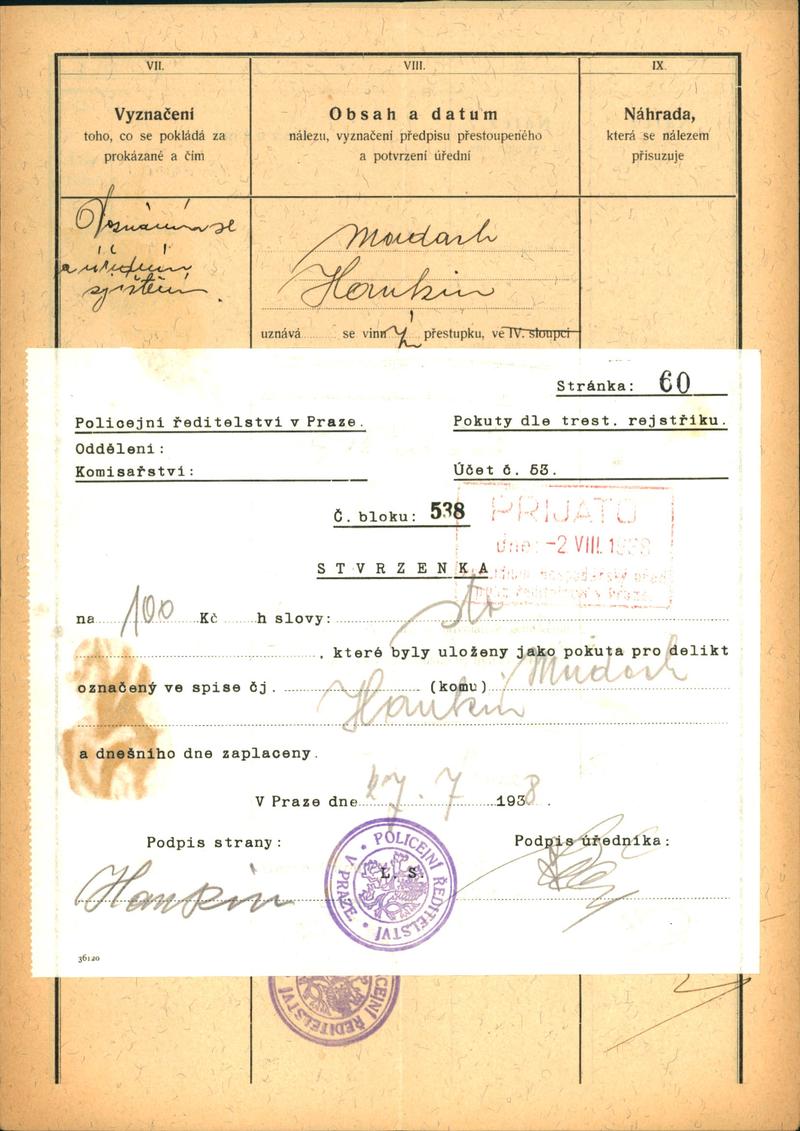 VII.
VIII.
IX.
Vyznačení
toho, co se pokládá za
prokázané a čím
Obsah a datum
nálezu, vyznačení předpisu přestoupeného
a potvrzení úřední
Náhrada,
která se nálezem
přisuzuje
Doznáním se
a úředním
zjištěním.
Mordach
Hankin
uznává se vinný přestupku, ve IV. sloupci
Stránka: 60
Policejní ředitelství v Praze.
Pokuty dle trest. rejstříku.
Oddělení:
Komisařství:
Účet č. 53.
Č. bloku: 538
PŘIJATO
dne: -2 VIII. 1938
STVRZENKA
na 100 Kč h slovy: sto
, které byly uloženy jako pokuta pro delikt
označený ve spise čj. (komu) Mordach
Hankin
a dnešního dne zaplaceny.
V Praze dne 27. 7. 1938.
Podpis strany:
Podpis úředníka:
POLICEJNÍ ŘEDITELSTVÍ V PRAZE
L. S.
Hankin
36120
CEJNÍ ŘEDITELSTVÍ